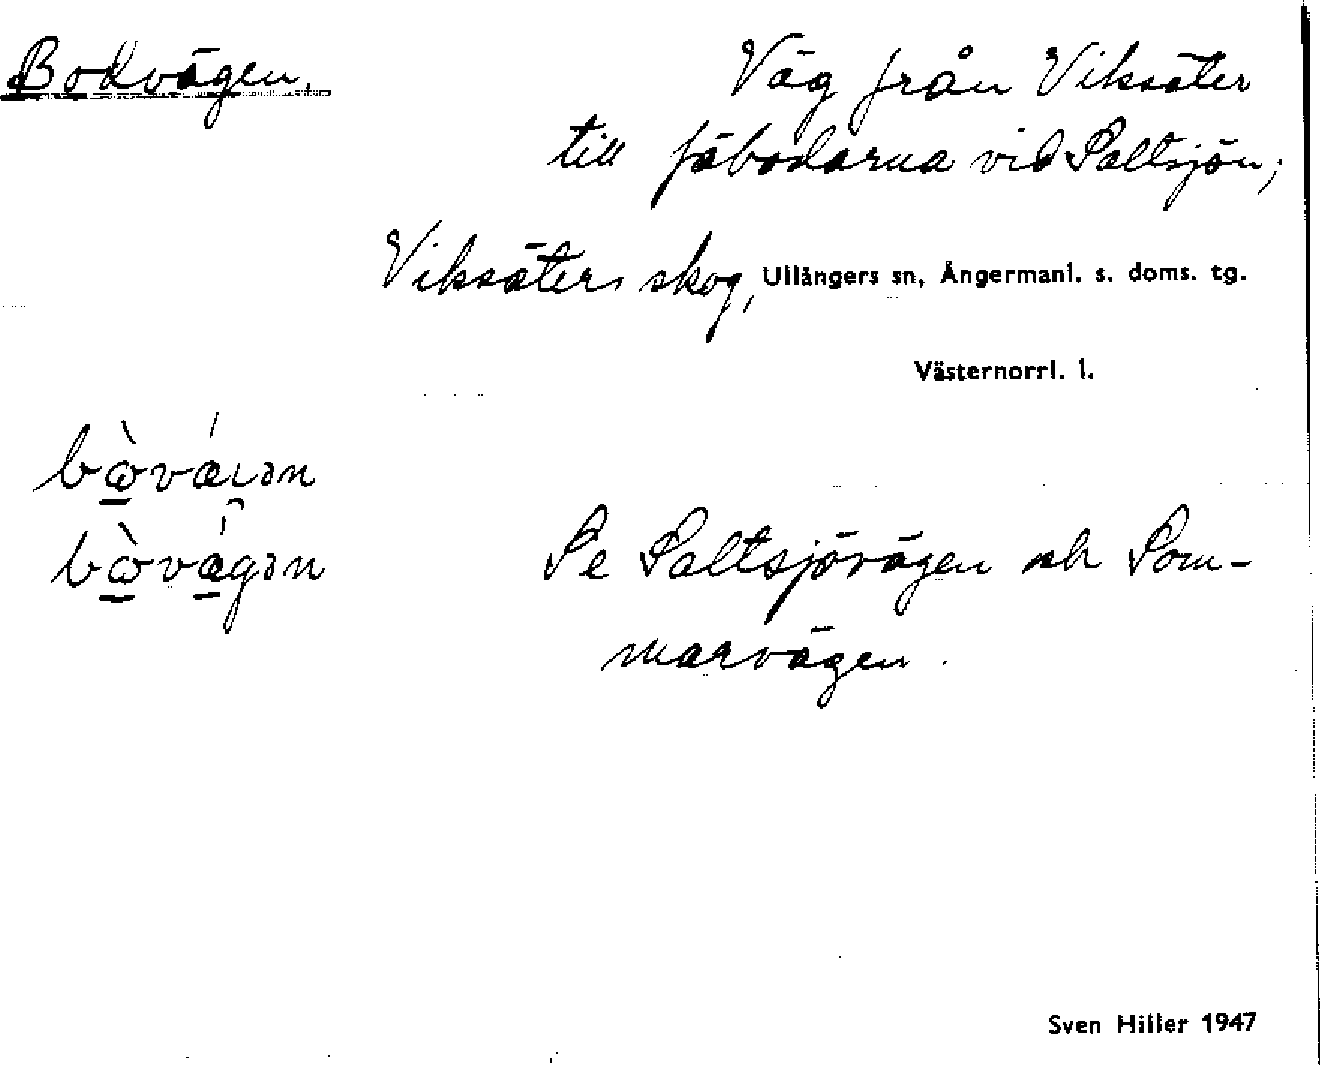 Bodvägen,
Väg från Viksäter
till fäbodarna vid Saltsjön;
Viksäters skog, Ullångers sn, Ångermanl. s. doms. tg.
Västernorrl. l.
Se Saltsjövägen och Som-
marvägen.
Sven Hiller 1947